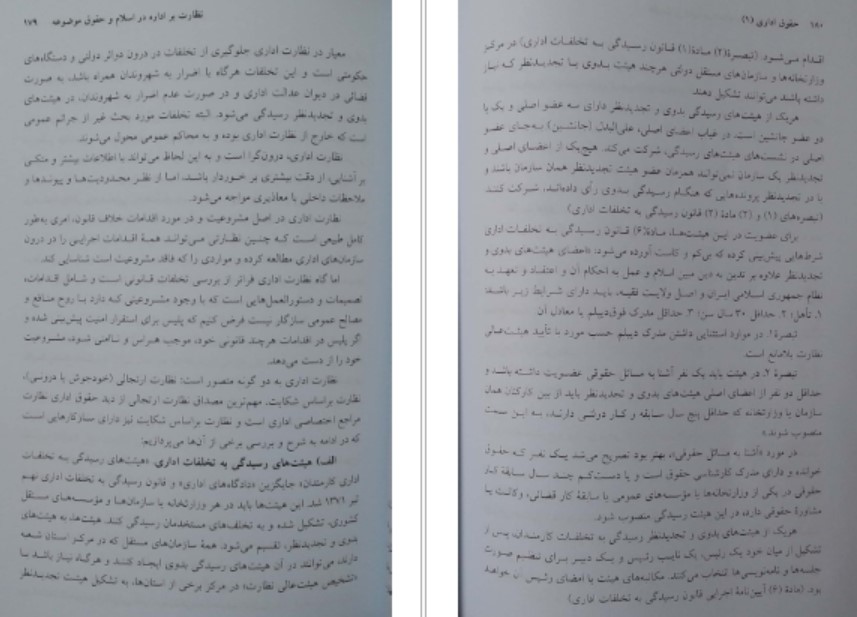 نظارت بر اداره در اسلام و حقوق موضوعه ۱۷۹
معیار در نظارت اداری جلوگیری از تخلفات در درون دوائر دولتی و دستگاه‌های
حکومتی است و این تخلفات هرگاه با اضرار به شهروندان همراه باشد، به صورت
قضائی در دیوان عدالت اداری و در صورت عدم اضرار به شهروندان، در هیئت‌های
بدوی و تجدیدنظر رسیدگی می‌شود. البته تخلفات مورد بحث غیر از جرائم عمومی
است که خارج از نظارت اداری بوده و به محاکم عمومی محول می‌شوند.
نظارت اداری، درون‌گرا است و به این لحاظ می‌تواند با اطلاعات بیشتر و متکی
بر آشنایی، از دقت بیشتری برخوردار باشد، اما از نظر محدودیت‌ها و پیوندها و
ملاحظات داخلی با معاذیری مواجه می‌شود.
نظارت اداری در اصل مشروعیت و در مورد اقدامات خلاف قانون، امری به‌طور
کامل طبیعی است که چنین نظارتی می‌تواند همهٔ اقدامات اجرایی را در درون
سازمان‌های اداری مطالعه کرده و مواردی را که فاقد مشروعیت است شناسایی کند.
اما گاه نظارت اداری فراتر از بررسی تخلفات قانونی است و شامل اقدامات،
تصمیمات و دستورالعمل‌هایی است که با وجود مشروعیتی که دارد با روح منافع و
مصالح عمومی سازگار نیست فرض کنیم که پلیس برای استقرار امنیت پیش‌بینی شده و
اگر پلیس در اقدامات هرچند قانونی خود، موجب هراس و ناامنی شود، مشروعیت
خود را از دست می‌دهد.
نظارت اداری به دو گونه متصور است: نظارت ارتجالی (خودجوش یا درونی)،
نظارت براساس شکایت. مهم‌ترین مصداق نظارت ارتجالی از دید حقوق اداری نظارت
مراجع اختصاصی اداری است و نظارت براساس شکایت نیز دارای سازوکارهایی است
که در ادامه به شرح و بررسی برخی از آن‌ها می‌پردازیم:
الف) هیئت‌های رسیدگی به تخلفات اداری. «هیئت‌های رسیدگی به تخلفات
اداری کارمندان» جایگزین «دادگاه‌های اداری» و قانون رسیدگی به تخلفات اداری نهم
تیر ۱۳۷۱ شد. این هیئت‌ها باید در هر وزارتخانه یا سازمان‌ها و مؤسسه‌های مستقل
کشوری، تشکیل شده و به تخلف‌های مستخدمان رسیدگی کند. هیئت‌ها، به هیئت‌های
بدوی و تجدیدنظر، تقسیم می‌شود. همهٔ سازمان‌های مستقل که در مرکز استان شعبه
دارند، می‌توانند در آن هیئت‌های رسیدگی بدوی ایجاد کنند و هرگاه نیاز باشد با
«تشخیص هیئت‌عالی نظارت» در مرکز برخی از استان‌ها، به تشکیل هیئت تجدیدنظر
۱۸۰ حقوق اداری (۱)
اقدام می‌شود. (تبصرهٔ (۲) مادهٔ (۱) قانون رسیدگی به تخلفات اداری) در مرکز
وزارتخانه‌ها و سازمان‌های مستقل دولتی هرچند هیئت بدوی یا تجدیدنظر که نیاز
داشته باشد می‌توانند تشکیل دهند.
هریک از هیئت‌های رسیدگی بدوی و تجدیدنظر دارای سه عضو اصلی و یک یا
دو عضو جانشین است. در غیاب اعضای اصلی، علی‌البدل (جانشین) به‌جای عضو
اصلی در نشست‌های هیئت‌های رسیدگی، شرکت می‌کند. هیچ‌یک از اعضای اصلی و
تجدیدنظر یک سازمان نمی‌تواند همزمان عضو هیئت تجدیدنظر همان سازمان باشد و
یا در تجدیدنظر پرونده‌هایی که هنگام رسیدگی بدوی رأی داده‌اند، شرکت کنند
(تبصره‌های (۱) و (۲) مادهٔ (۲) قانون رسیدگی به تخلفات اداری)
برای عضویت در این هیئت‌ها، مادهٔ(۶) قانون رسیدگی به تخلفات اداری
شرط‌هایی پیش‌بینی کرده که بی‌کم و کاست آورده می‌شود: «اعضای هیئت‌های بدوی و
تجدیدنظر علاوه بر تدین به دین مبین اسلام و عمل به احکام آن و اعتقاد و تعهد به
نظام جمهوری اسلامی ایران و اصل ولایت فقیه، باید دارای شرایط زیر باشند:
۱. تأهل؛ ۲. حداقل ۳۰ سال سن؛ ۳. حداقل مدرک فوق‌دیپلم یا معادل آن
تبصرهٔ ۱. در موارد استثنایی داشتن مدرک دیپلم حسب مورد با تأیید هیئت‌عالی
نظارت بلامانع است.
تبصرهٔ ۲. در هیئت باید یک نفر آشنا به مسائل حقوقی عضویت داشته باشد و
حداقل دو نفر از اعضای اصلی هیئت‌های بدوی و تجدیدنظر باید از بین کارکنان همان
سازمان یا وزارتخانه که حداقل پنج سال سابقه و کار دولتی دارند، به این سمت
منصوب شوند.»
در مورد «آشنا به مسائل حقوقی»، بهتر بود تصریح می‌شد یک نفر که حقوق
خوانده و دارای مدرک کارشناسی حقوق است و یا دست‌کم چند سال سابقهٔ کار
حقوقی در یکی از وزارتخانه‌ها یا مؤسسه‌های عمومی یا سابقهٔ کار قضائی، وکالت یا
مشاورهٔ حقوقی دارد، در این هیئت رسیدگی منصوب شود.
هریک از هیئت‌های بدوی و تجدیدنظر رسیدگی به تخلفات کارمندان، پس از
تشکیل از میان خود یک رئیس، یک نایب رئیس و یک دبیر برای تنظیم صورت
جلسه‌ها و نامه‌نویسی‌ها انتخاب می‌کند. مکاتبه‌های هیئت با امضای رئیس آن خواهد
بود. (مادهٔ (۶) آیین‌نامهٔ اجرایی قانون رسیدگی به تخلفات اداری)